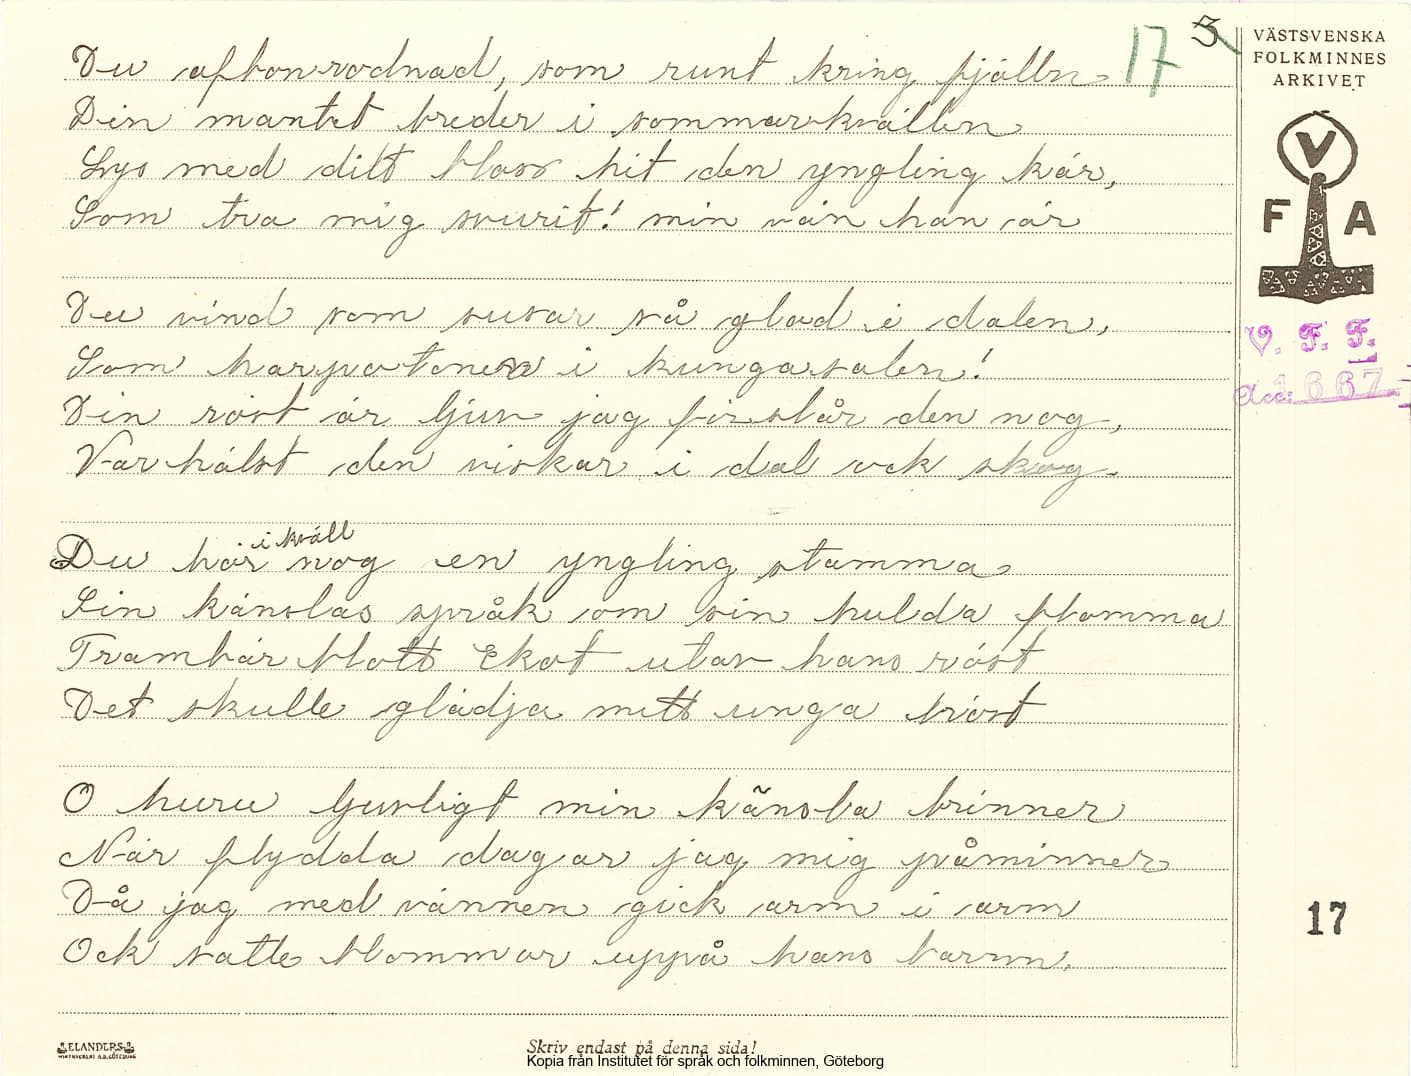 17 3
VÄSTSVENSKA
FOLKMINNES
ARKIVET
V
F A
V. F. F.
Acc: 1667
Du aftonrodnad, som runt kring fjällen
Din mantel breder i sommarkvällen
Lys med ditt bloss hit den yngling kär,
Som tro mig svurit! min vän han är
Du vind som susar så glad i dalen,
Som harpotoner i kungasalen!
Din röst är ljuv jag förstår den nog,
Varhälst den viskar i dal ock skog.
i kväll
Du hör nog en yngling stamma
Sin känslas språk om sin hulda flamma
Frambär blott Ekot utav hans röst
Det skulle glädja mitt unga bröst
O huru ljuvligt min känsla brinner
När flydda dagar jag mig påminner
Då jag med vännen gick arm i arm
Ock satte blommor uppå hans barm.
17
ELANDERS
Skriv endast på denna sida!
Kopia från Institutet för språk och folkminnen, Göteborg